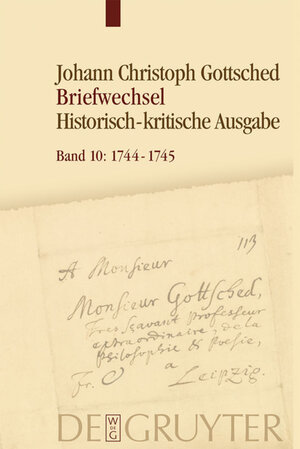 Johann Christoph Gottsched
Briefwechsel
Historisch-kritische Ausgabe
Band 10: 1744-1745
113
A Monsieur
Monsieur Gottsched,
Tres Scavant Professeur
extraordinaire, de la
Philosophie & Poesie,
Fr. a
Leipzig.
W
DE
G
DE GRUYTER